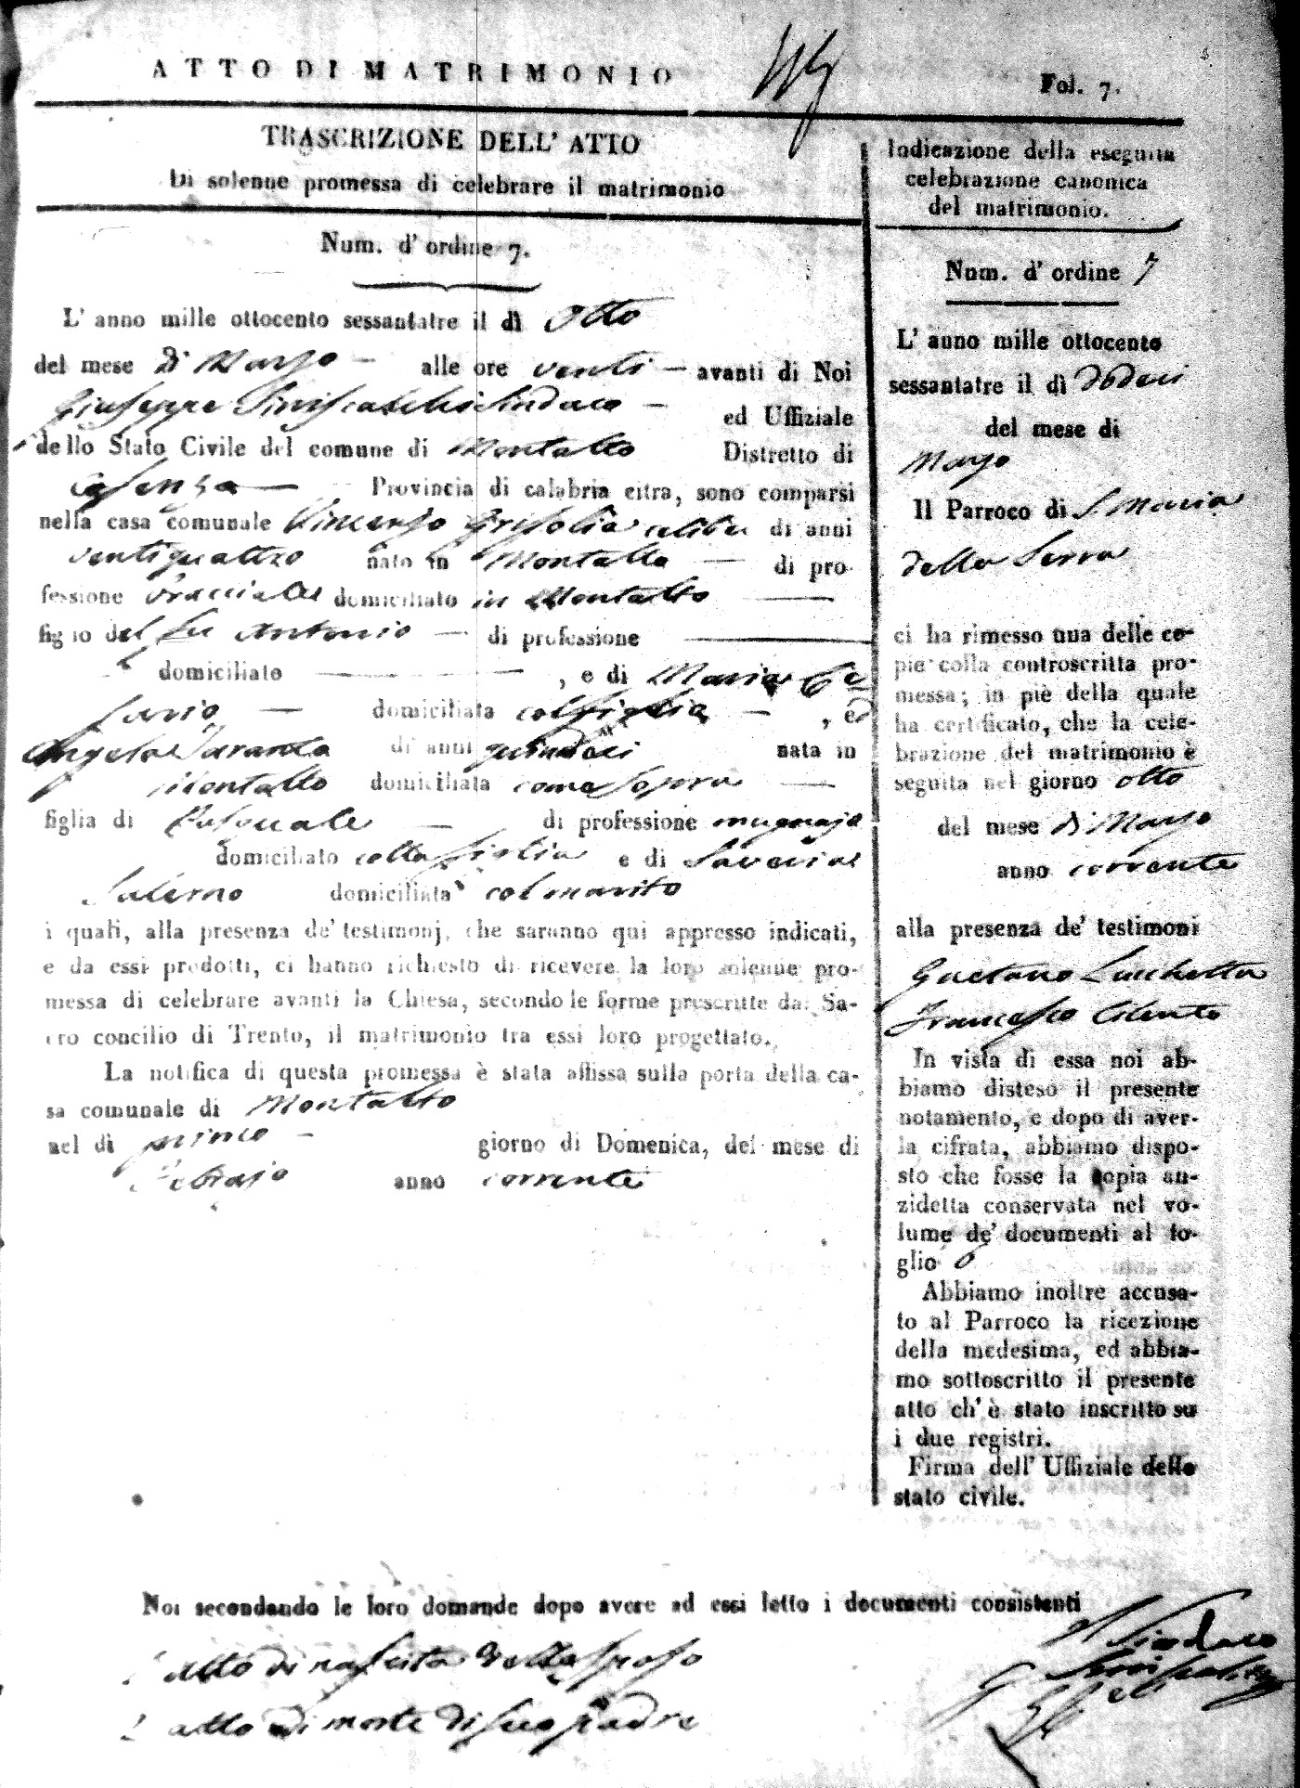 ATTO DI MATRIMONIO
Fol. 7.
TRASCRIZIONE DELL' ATTO
Di solenne promessa di celebrare il matrimonio
Num. d' ordine 7.
L' anno mille ottocento sessantatre il dì Otto
del mese di Marzo alle ore venti avanti di Noi
Giuseppe Siniscalchi Sindaco ed Uffiziale
dello Stato Civile del comune di Montalto Distretto di
Cosenza Provincia di calabria citra, sono comparsi
nella casa comunale Vincenzo Grisolia celibe di anni
ventiquattro nato in Montalto di pro-
fessione bracciale domiciliato in Montalto
figlio del fu Antonio di professione
domiciliato , e di Maria Ce
sario domiciliata col figlio , ed
Angela Taranto di anni quindici nata in
Montalto domiciliata come sopra
figlia di Pasquale di professione mugnajo
domiciliato colla figlia e di Saveria
Salerno domiciliata col marito
i quali, alla presenza de' testimonj, che saranno qui appresso indicati,
e da essi prodotti, ci hanno richiesto di ricevere la loro solenne pro-
messa di celebrare avanti la Chiesa, secondo le forme prescritte dal Sa-
cro concilio di Trento, il matrimonio tra essi loro progettato.
La notifica di questa promessa è stata affissa sulla porta della ca-
sa comunale di Montalto
nel dì primo giorno di Domenica, del mese di
Febrajo anno corrente
Indicazione della eseguita
celebrazione canonica
del matrimonio.
Num. d' ordine 7
L' anno mille ottocento
sessantatre il dì dodeci
del mese di
Marzo
Il Parroco di S. Maria
della Serra
ci ha rimesso una delle co-
pie colla controscritta pro-
messa; in piè della quale
ha certificato, che la cele-
brazione del matrimonio è
seguita nel giorno otto
del mese di Marzo
anno corrente
alla presenza de' testimoni
Gaetano Lucchetta
Francesco Cilento
In vista di essa noi ab-
biamo disteso il presente
notamento, e dopo di aver-
la cifrata, abbiamo dispo-
sto che fosse la copia an-
zidetta conservata nel vo-
lume de' documenti al fo-
glio 6
Abbiamo inoltre accusa-
to al Parroco la ricezione
della medesima, ed abbia-
mo sottoscritto il presente
atto ch' è stato inscritto su
i due registri.
Firma dell' Uffiziale dello
stato civile.
Noi secondando le loro domande dopo avere ad essi letto i documenti consistenti
L'atto di nascita dello sposo
L'atto di morte di suo padre
Il Sindaco
G Siniscalchi